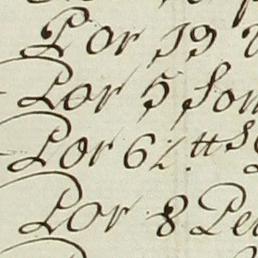 Por 19
Por 5 Son
Por 6 L.tts
Por 8 Pe